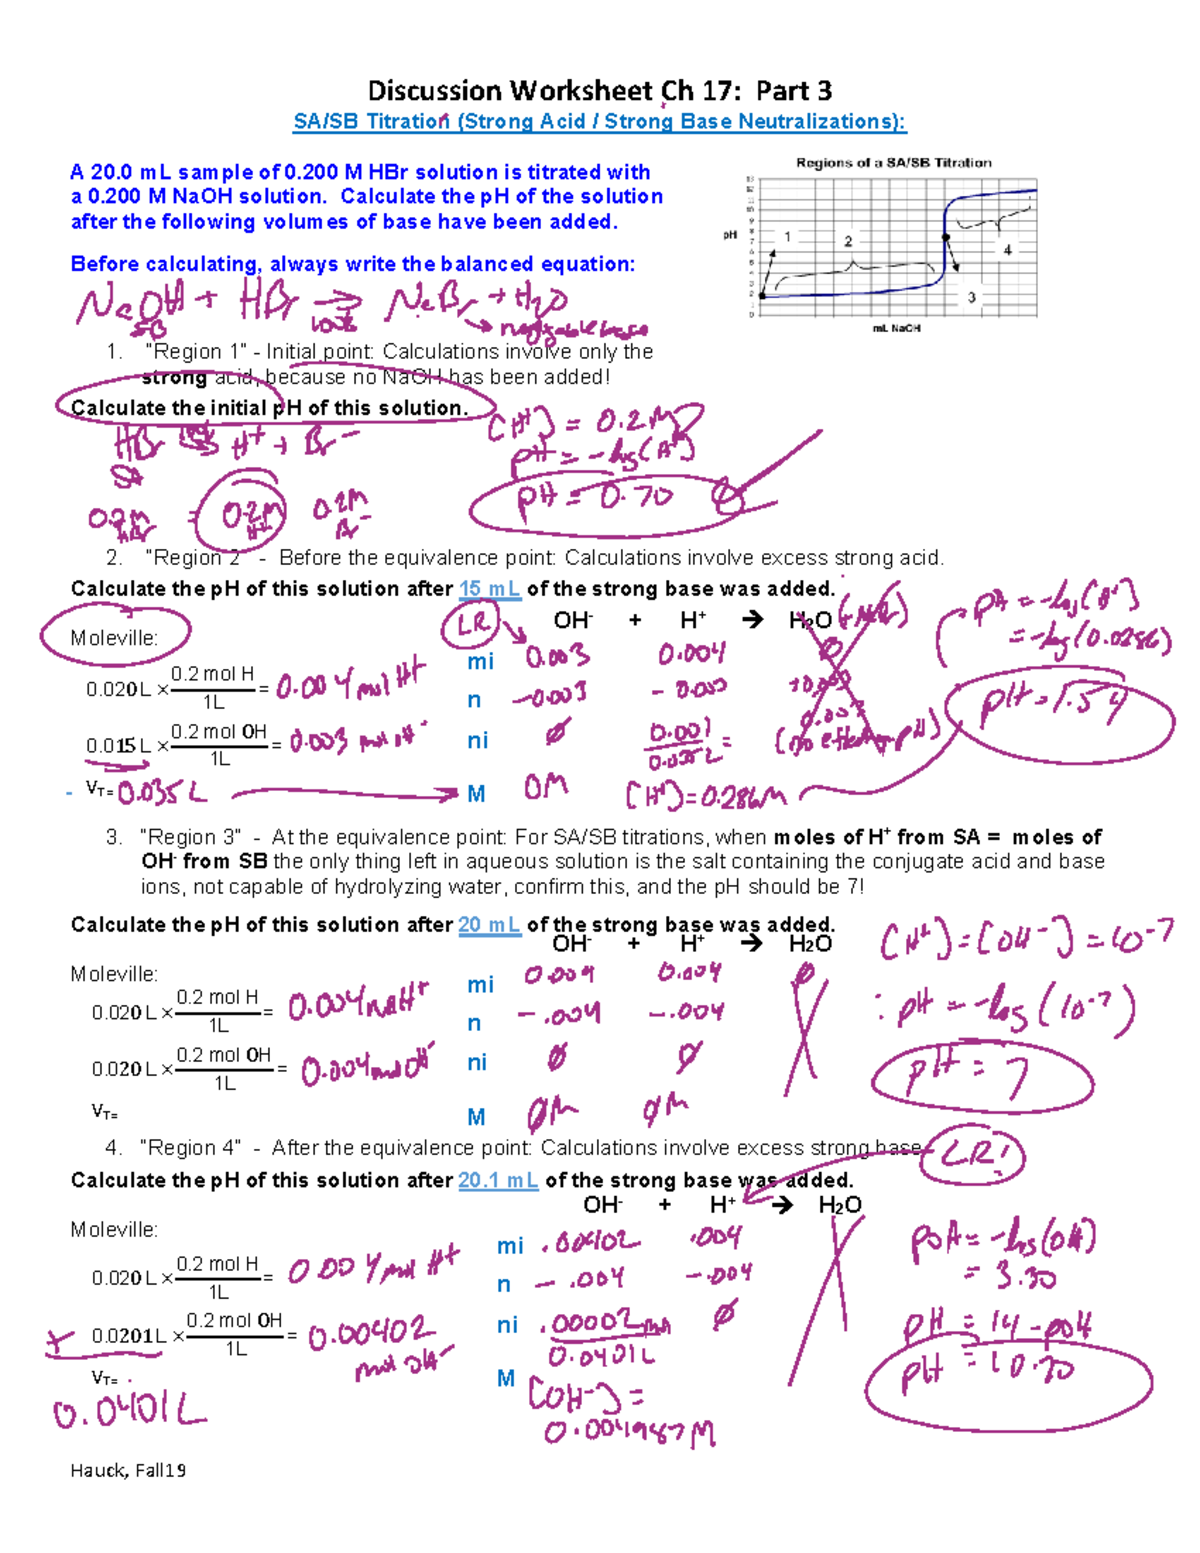 Discussion Worksheet Ch 17: Part 3
SA/SB Titration (Strong Acid / Strong Base Neutralizations):
A 20.0 mL sample of 0.200 M HBr solution is titrated with
a 0.200 M NaOH solution. Calculate the pH of the solution
after the following volumes of base have been added.
Before calculating, always write the balanced equation:
Regions of a SA/SB Titration
13
12
11
10
9
8
7
6
5
4
3
2
1
0
pH
1
2
3
4
mL NaOH
NaOH + HBr → NaBr + H2O
SB 100%
1. "Region 1" - Initial point: Calculations involve only the
strong acid, because no NaOH has been added!
Calculate the initial pH of this solution.
HBr 100% H+ + Br-
SA
0.2M = 0.2M 0.2M
HBr H+
[H+] = 0.2M
pH = -log(H+)
pH = 0.70
2. "Region 2" - Before the equivalence point: Calculations involve excess strong acid.
Calculate the pH of this solution after 15 mL of the strong base was added.
LR OH- + H+ → H2O
Moleville:
0.020 L × 0.2 mol H / 1L = 0.004 mol H+
0.015 L × 0.2 mol OH / 1L = 0.003 mol OH-
- VT= 0.035 L
mi 0.003 0.004 0
n -0.003 -0.003 +0.003
ni 0 0.001 / 0.035L = 0.003
(no effect on pH)
M 0M [H+] = 0.286M
pH = -log(H+)
= -log(0.0286)
pH = 1.54
3. "Region 3" - At the equivalence point: For SA/SB titrations, when moles of H+ from SA = moles of
OH- from SB the only thing left in aqueous solution is the salt containing the conjugate acid and base
ions, not capable of hydrolyzing water, confirm this, and the pH should be 7!
Calculate the pH of this solution after 20 mL of the strong base was added.
OH- + H+ → H2O
Moleville:
0.020 L × 0.2 mol H / 1L = 0.004 mol H+
0.020 L × 0.2 mol OH / 1L = 0.004 mol OH-
VT=
mi 0.004 0.004 0
n -.004 -.004
ni 0 0
M 0M 0M
[H+] = [OH-] = 10-7
: pH = -log(10-7)
pH = 7
4. "Region 4" - After the equivalence point: Calculations involve excess strong base
LR!
Calculate the pH of this solution after 20.1 mL of the strong base was added.
OH- + H+ → H2O
Moleville:
0.020 L × 0.2 mol H / 1L = 0.004 mol H+
0.0201L × 0.2 mol OH / 1L = 0.00402 mol OH-
VT=
0.0401L
mi .00402 .004
n -.004 -.004
ni .00002 mol 0
0.0401L
M [OH-] =
0.004987M
pOH = -log(OH)
= 3.30
pH = 14-pOH
pH = 10.70
Hauck, Fall19